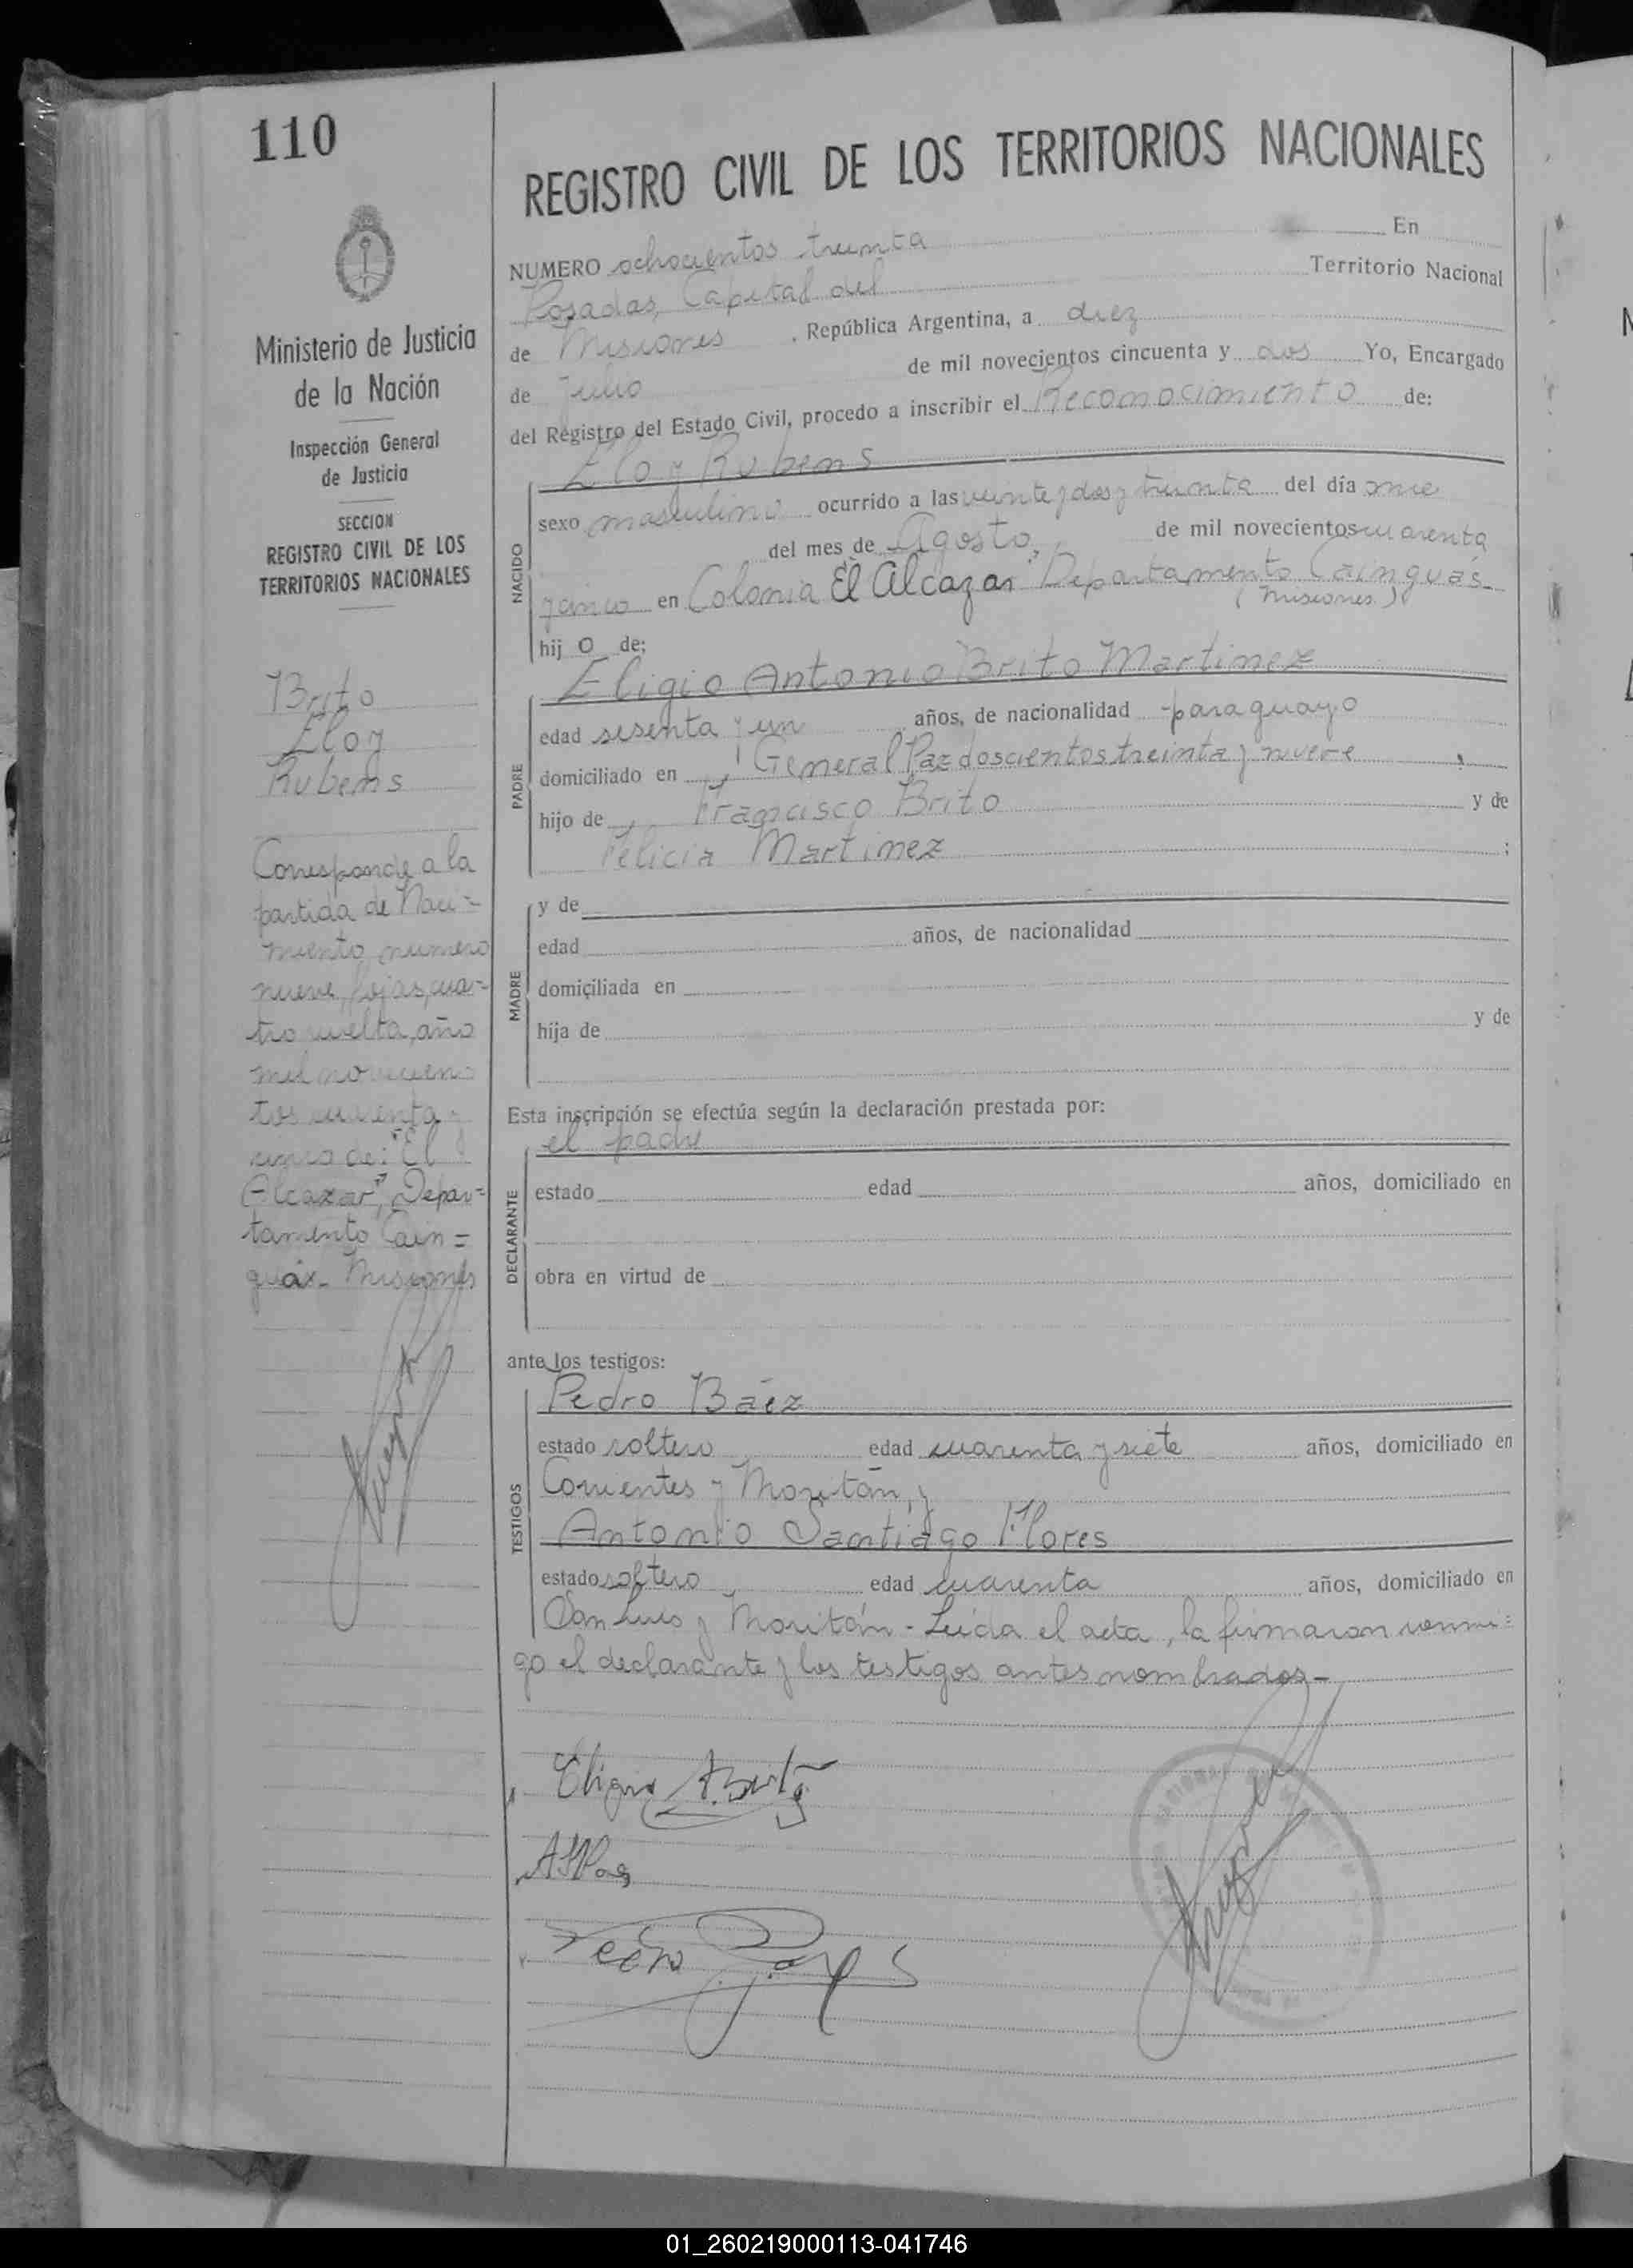 110
Ministerio de Justicia
de la Nación
Inspección General
de Justicia
SECCION
REGISTRO CIVIL DE LOS
TERRITORIOS NACIONALES
Brito
Eloy
Rubens
Corresponde a la
partida de Naci=
miento numero
nueve, fojas, cua=
tro vuelta, año
mil novecien
tos cuarenta y
cinco de: "El
Alcazar", Depar=
tamento Cain=
guás- Misiones
REGISTRO CIVIL DE LOS TERRITORIOS NACIONALES
NUMERO ochocientos treinta En
Posadas, Capital del Territorio Nacional
de Misiones , República Argentina, a diez
de Julio de mil novecientos cincuenta y dos Yo, Encargado
del Registro del Estado Civil, procedo a inscribir el Reconocimiento de:
Eloy Rubens
NACIDO
sexo masculino ocurrido a las veinte y dos y treinta del día once
del mes de Agosto, de mil novecientos cuarenta
y cinco en Colonia "El Alcazar" Departamento Cainguás
(Misiones)
hij o de;
Eligio Antonio Brito Martinez
PADRE
edad sesenta y un años, de nacionalidad paraguayo
domiciliado en General Paz doscientos treinta y nueve ,
hijo de Francisco Brito y de
Felicia Martinez ;
MADRE
y de
edad años, de nacionalidad
domiciliada en
hija de y de
Esta inscripción se efectúa según la declaración prestada por:
el padre
DECLARANTE
estado edad años, domiciliado en
obra en virtud de
ante los testigos:
Pedro Báez
TESTIGOS
estado soltero edad cuarenta y siete años, domiciliado en
Corrientes y Moritán, y
Antonio Santiago Flores
estado soltero edad cuarenta años, domiciliado en
San Luis y Moritán - Leida el acta, la firmaron conmi=
go el declarante y los testigos antes nombrados-
Eligio A. Brito
01_260219000113-041746